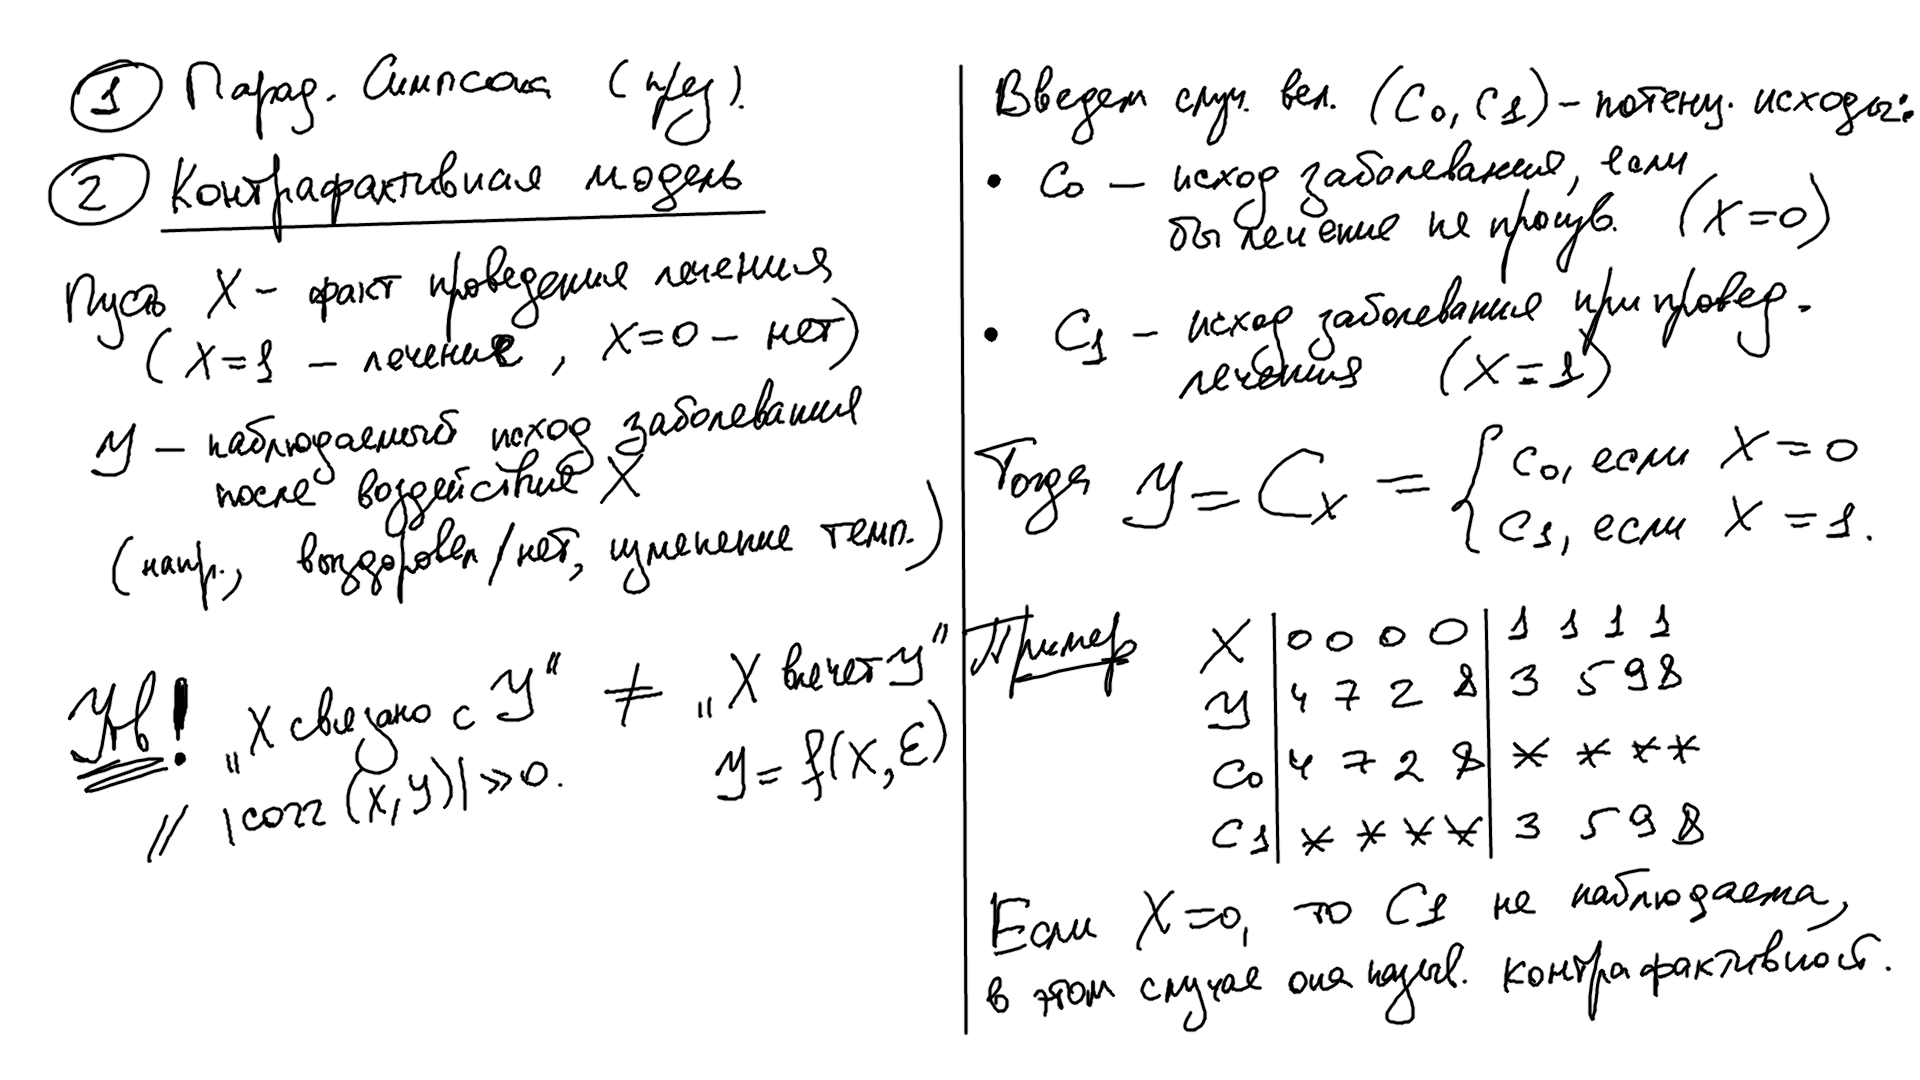 ① Парад. Симпсона (през).
② Контрафактивная модель
Пусть X – факт проведения лечения
(X=1 – лечение, X=0 – нет)
Y – наблюдаемый исход заболевания
после воздействие X
(напр., выздоровел/нет, изменение темп.)
NB! „X связано с Y" ≠ „X влечет Y"
// |corr(X,Y)| ≫ 0. Y = f(X, ε)
Введем случ. вел. (C₀, C₁) – потенц. исходы:
• C₀ – исход заболевания, если
бы лечение не произв. (X=0)
• C₁ – исход заболевания при провед.
лечения (X=1)
Тогда Y = C_X = { C₀, если X=0
C₁, если X=1.
Пример X | 0 0 0 0 | 1 1 1 1
Y | 4 7 2 8 | 3 5 9 8
C₀ | 4 7 2 8 | * * * *
C₁ | * * * * | 3 5 9 8
Если X=0, то C₁ не наблюдаема,
в этом случае она назыв. контрафактивной.